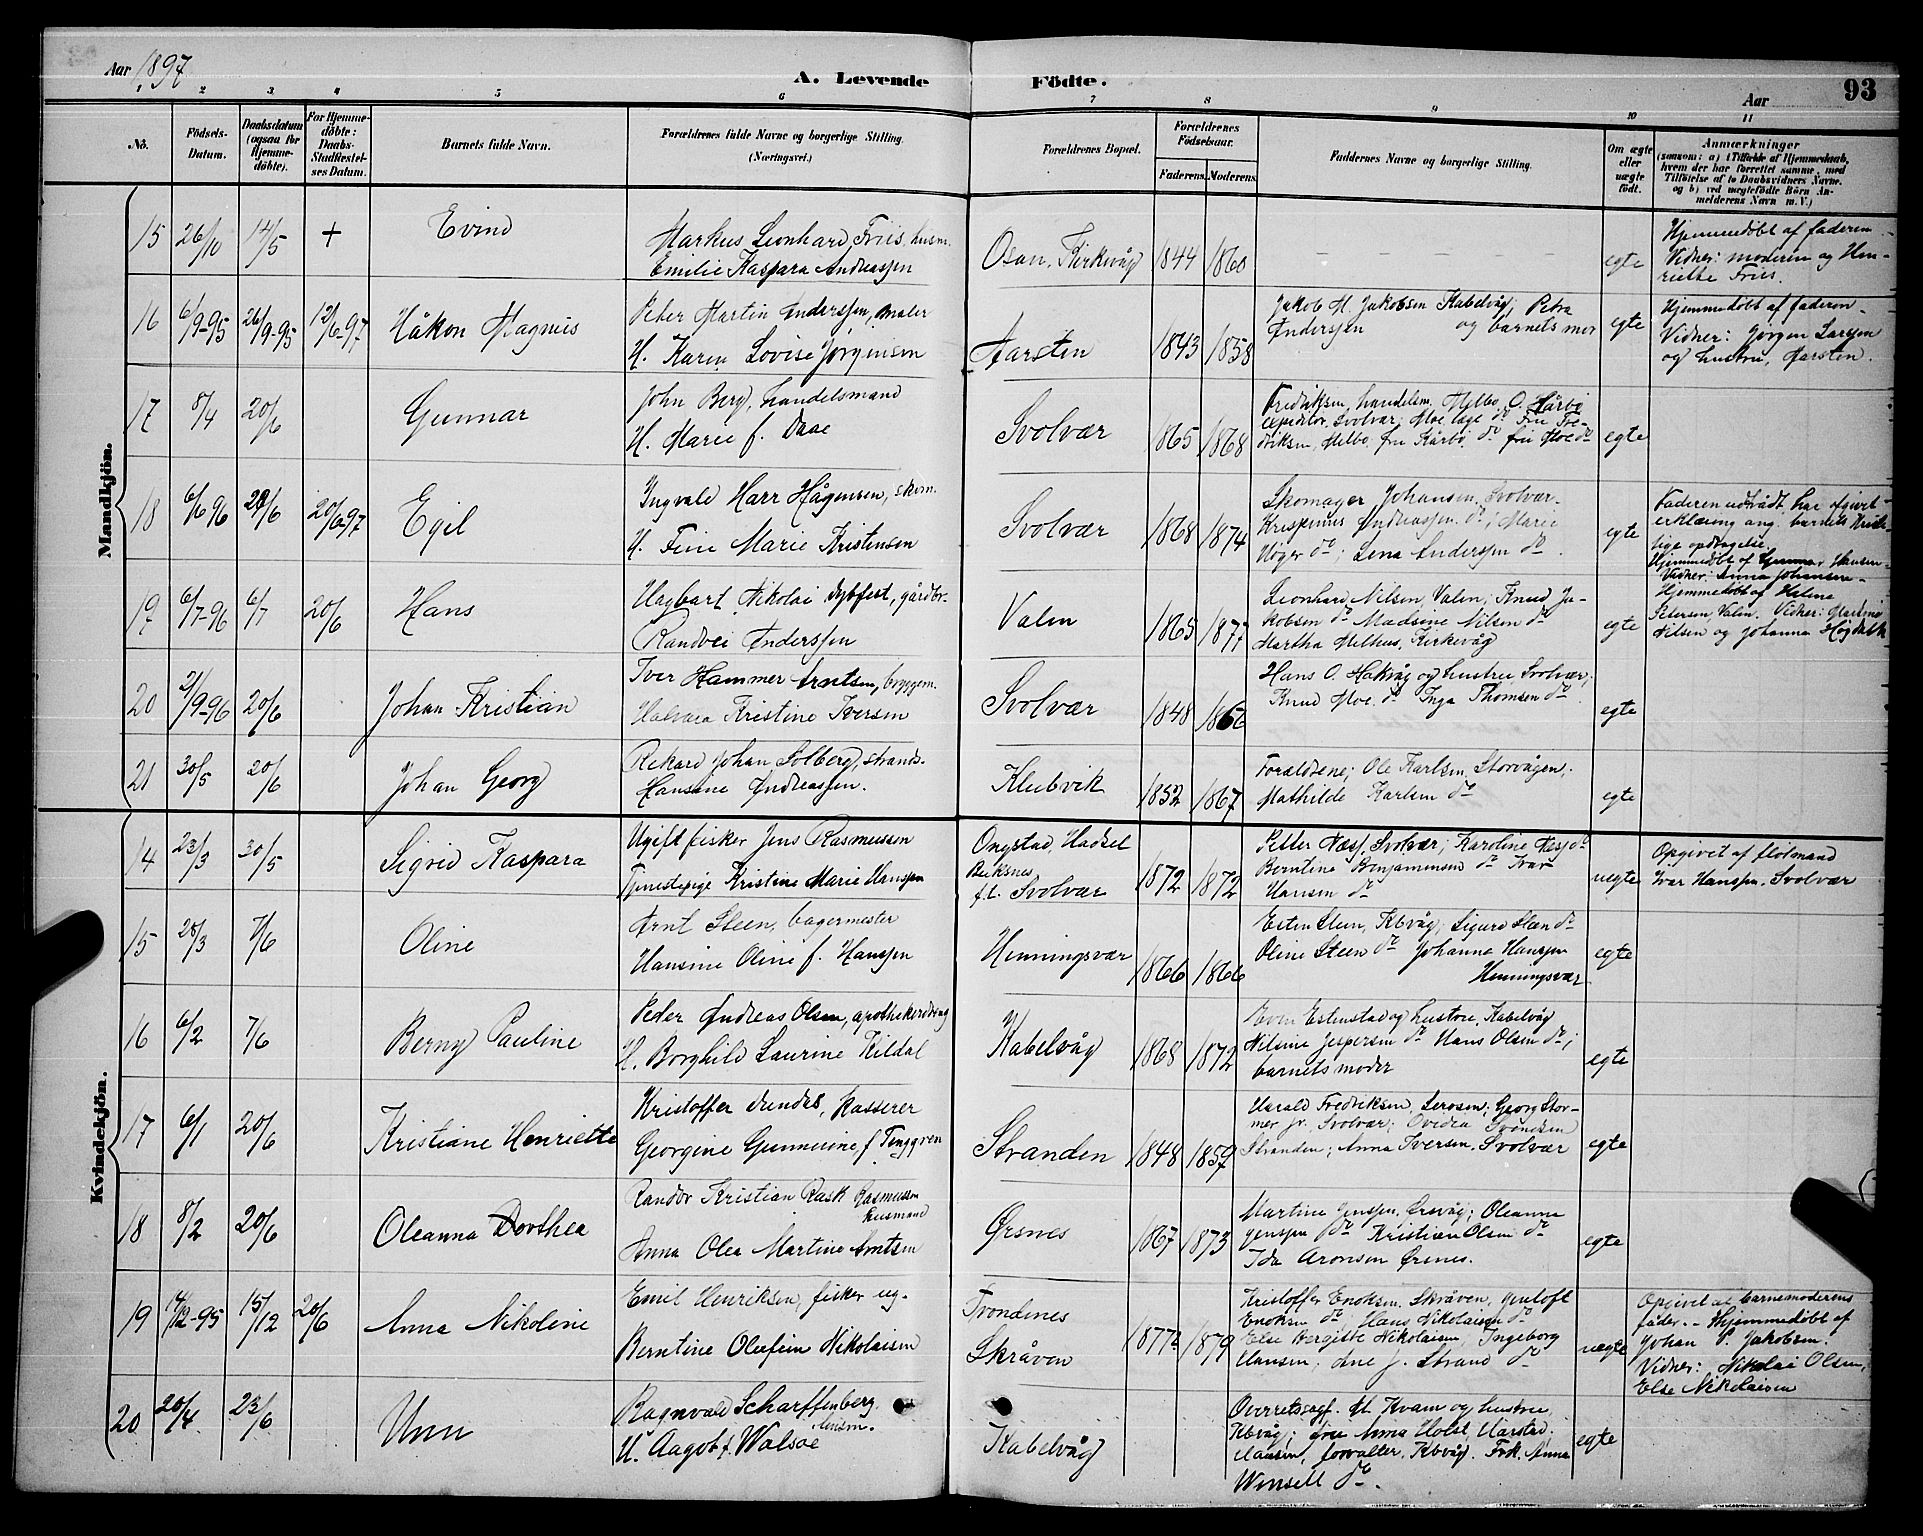 Aar 1897
A. Levende Födte.
Aar
93
1 2 3. 4 5 6 7 8 9 10 11
No.
Födsels-Datum.
Daabsdatum (ogsaa for Hjemme-döbte).
For Hjemme-döbte: Daabs-Stadfæstel-ses Datum.
Barnets fulde Navn.
Forældrenes fulde Navne og borgerlige Stilling. (Næringsvei.)
Forældrenes Bopæl.
Forældrenes Födselsaar.
Faderens. Moderens.
Faddernes Navne og borgerlige Stilling.
Om ægte eller uægte födt.
Anmærkninger
(saasom: a) i Tilfælde af Hjemmedaab, hvem der har forrettet samme, med Tilföielse af to Daabsvidners Navne. og b) ved uægtefödte Börn An-melderens Navn m. V.)
Mandkjön.
15 26/10 14/5 + Evind
Markus Leonhard Friis, husm.
Emilie Kaspara Andreassen
Osan, Kirkevåg 1844 1860 – – – – – – egte
Hjemmedöbt af faderen.
Vidner: moderen og Hen-
riette Friis.
16 6/9-95 26/9-95 12/6-97 Håkon Magnus
Peter Martin Anderssen, maler
H. Karen Lovise Jørgensen
Aarsten 1843 1858
Jakob M. Jakobsen Kabelvåg; Petra
Anderssen og barnets mor egte
Hjemmedöbt af faderen
Vidner: Jørgen Larssen
og hustru, Aarsten.
17 8/4 20/6 Gunnar
John Berg, handelsmand
H. Marie f. Daae
Svolvær 1865 1868
Fredriksen, handelsm. Melbo, O. Kårbø
expeditør, Svolvær, Moe, do Fru Fre-
driksen, Melbo, fru Kårbø, do fru Moe do egte
18 6/6 96 /6 20/6-97 Egil
Ingvald Harr Hågensen, skom.
H. Marie Kristensen
Svolvær 1868 1874
Skomager Johansen, Svolvær.
Andreassen do; Marie
do; Lena Anderssen do. egte
Faderen udtrådt, har afgivet
erklæring ang. barnets Krist-
lige opdragelse.
Hjemmedöbt af Gunnar Hansen
Vidner: Anna Johansen
19 6/7-96 6/7 20/6 Hans
Hagbart Nikolai Dybfest, gårdbr.
Randvei Anderssen
Valen 1865 1877
Leonhard Nilsen, Valen; Knud Ja-
kobsen do Madsine Nilsen do
Martha Melhus, Kirkevåg egte
Hjemmedöbt af Halma
Petersen, Valen. Vidner: Martine
Nilsen og Johanna
20 21/9-96 20/6 Johan Kristian
Iver Hammer Arntsen, bryggem.
Halvara Kristine Iversen
Svolvær 1848 1856
Hans O. Hakvåg og hustru Svolvær;
Knud Moe do Inga Thomsen do. egte
21 30/5 20/6 Johan Georg
Rikard Johan Solberg, strands.
Hansine Andreassen.
Klubvik 1852 1867
Forældrene; Ole Karlsen, Storvågen;
Mathilde Karlsen do egte
Kvindekjön.
14 23/3 30/5 Sigrid Kaspara
Ugift fisker Jens Rasmussen
Tjenestepige Kristine Marie Hanssen
Ongstad, Hadsel
Buksnes
f.t. Svolvær 1872 1872
Petter Næss, Svolvær; Karoline Næss do
Berntine Benjaminsen do Ivar
Hansen do uegte
Opgivet af flotmand
Ivar Hanssen, Svolvær
15 28/3 7/6 Oline
Arnt Steen, bagermester
Hansine Oline f. Hanssen
Henningsvær 1866 1866
Esten Steen, Kbvåg; Sigurd Steen do
Oline Steen do Johanna Hanssen
Henningsvær egte
16 6/2 7/6 Berny Pauline
Peder Andreas Olsen, apothekerdreng
H. Borghild Laurine Kildal
Kabelvåg 1868 1872
Even Estenstad og hustru, Kabelvåg
Nilsine Jespersen do Hans Olsen do;
barnets moder egte
17 6/1 20/6 Kristiane Henriette
Kristoffer Svendsen, kasserer
Georgine f.
Stranden 1848 1859
Harald Fredriksen, Georg Stor-
mer jr. Svolvær; Ovidia Svendsen
Stranden; Anna Iversen, Svolvær egte
18 8/2 20/6 Oleanna Dorthea
Randor Kristian Rask Rasmussen
husmand
Anna Olea Martine Arntsen
Ørsnes 1867 1873
Martine Jenssen, Ørsvåg; Oleanna
Jenssen do Kristian Olsen do
Ida Aronsen Ørsnes. egte
19 14/12-95 15/12 20/6 Anna Nikoline
Emil Henriksen, fisker ug.
Berntine Olufine Nikolaisen
Trondenes
Skråven 1877 1879
Kristoffer Enoksen, Skråven,
Enoksen do; Hans Nikolaisen do
Else Bergitte Nikolaisen, Ingeborg
Hansen; Ane J. Strand do uegte
Opgivet af barnemoderens
fader. – Hjemmedöbt af
Johan P. Jakobsen.
Vidner: Nikolai Olsen,
Else Nikolaisen
20 20/4 23/6 Unn
Ragnvald Scharffenberg,
H. Aagot f. Walsøe
Kabelvåg
Overretssagf. M. Kvam og hustru,
Kbvåg; fru Anna Holst, Harstad;
Hansen, forvalter, Kbvåg. Frk. Anna
Winsell do. egte